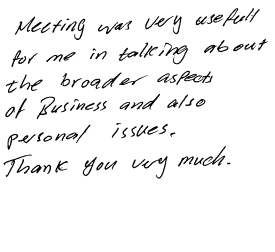 Meeting was very usefull
for me in talking about
the broader aspects
of Business and also
personal issues.
Thank you very much.